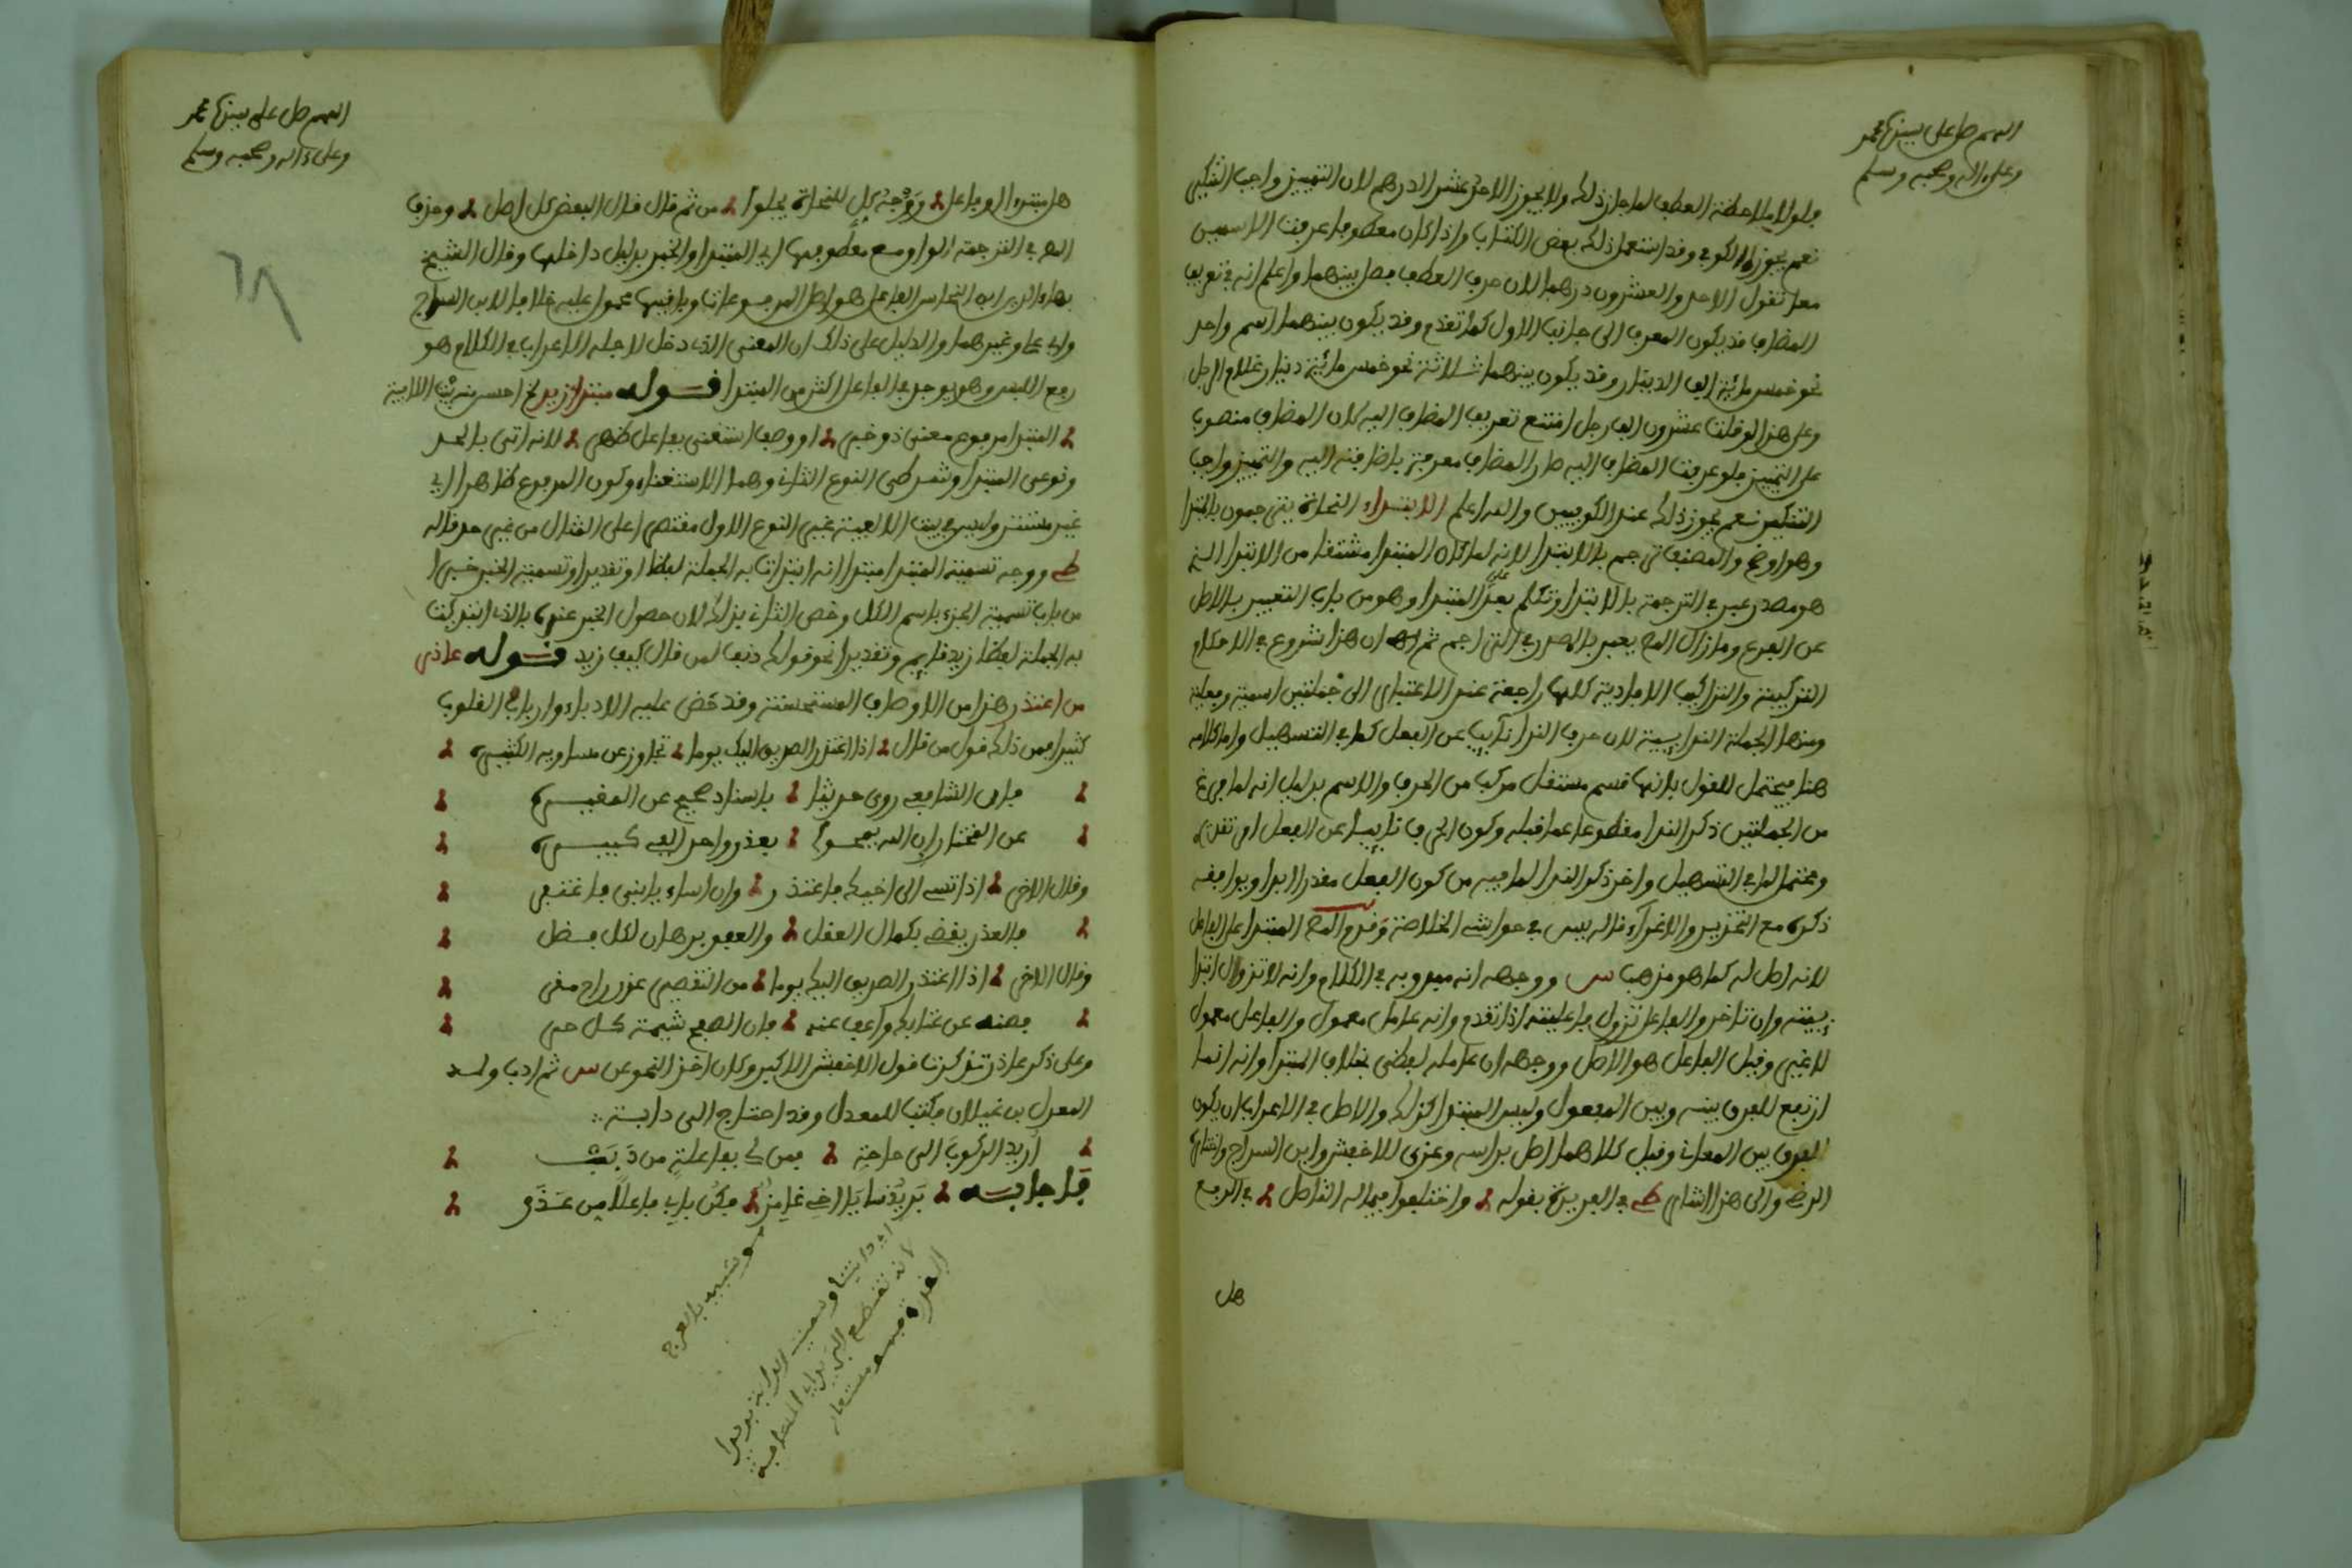 اللهم صل على سيدنا محمد
وعلى ءاله وصحبه وسلم
فلولا ملاحظة العطف لما جاز ذلك ولا يجوز الاحد عشر الدرهم لان التمييز واجب التنكير
نعم يجوزه الكوفي وقد استعمل ذلك بعض الكتاب واذا كان معطوفا عرفت الاسمين
معا تقول الاحد والعشرون درهما لان حرف العطف فصل بينهما واعلم انه في تعريف
المضاف قد يكون المعرف الى جانب الاول كما تقدم وقد يكون بينهما اسم واحد
نحو خمس مائة الف الدينار وقد يكون بينهما ثلاثة نحو خمس مائة دينار غلام الرجل
وعلى هذا لو قلت عشرون الف رجل امتنع تعريف المضاف اليه لان المضاف منصوب
على التمييز فلو عرفت المضاف اليه صار المضاف معرفة باضافته اليه والتمييز واجب
التنكير نعم يجوز ذلك عند الكوفيين والله اعلم الابتداء النحاة يترجمون بالمبتدا
وهو اوضح والمصنف ترجم بالابتدا لانه لما كان المبتدا مشتقا من الابتدا الذي
هو مصدر عبر في الترجمة بالابتدا وتكلم بعد على المبتدا وهو من باب التعبير بالاصل
عن الفرع وما زال المص يعبر بالمصدر في التراجم ثم ان هذا شروع في الاحكام
التركيبية والتراكيب الافادية كلها راجعة عند الاعتبار الى جملتين اسمية وفعلية
ومنها الجملة الندايية لان حرف الندا نايب عن الفعل كما في التسهيل واما كلامه
هنا فيحتمل القول بانها قسم مستقل مركب من الحرف والاسم بدليل انه لما فرغ
من الجملتين ذكر الندا مقطوعا عما قبله وكون الحرف نايبا عن الفعل امر تقديري
ويحتمل ما في التسهيل واخر ذكر الندا لما فيه من كون الفعل مقدرا ابدا ويوافقه
ذكره مع التحذير والاغراء قاله يس في حواشي الخلاصة وقدم المص المبتدا على الفاعل
لانه اصل له كما هو مذهب س ووجهه انه مبدو به في الكلام وانه لا تزول ابتدا
ييته وان تاخر والفاعل تزول فاعليته اذا تقدم وانه عامل معمول والفاعل معمول
لا غير وقيل الفاعل هو الاصل ووجهه ان عامله لفظي بخلاف المبتدا وانه انما
ارتفع للفرق بينه وبين المفعول وليس المبتدا كذلك والاصل في الاعراب ان يكون
للفرق بين المعاني وقيل كلاهما اصل براسه وعزي للاخفش وابن السراج واختاره
الرضي والى هذا اشار ط في الفريدة بقوله واختلفوا فيما له التاصل في الرفع
هل
اللهم صل على سيدنا محمد
وعلى ءاله وصحبه وسلم
هل مبتدء او فاعل ووجه كل للنحاة يجلو من ثم قال قال البعض كل اصل وحذف
المص في الترجمة الواو مع معطوفها اي المبتدا والخبر بدليل داخلها وقال الشيخ
بهاء الدين ابن النحاس الفاعل هو اصل المرفوعات وباقيها محمول عليه خلافا لابن السراج
وابي علي وغيرهما والدليل على ذلك ان المعنى الذي دخل لاجله الاعراب في الكلام هو
رفع اللبس وهو يوجد في الفاعل اكثر من المبتدا قوله مبتدا زيد الخ احسن منه بيت الالفية
المبتدا مرفوع معنى ذو خبر او وصف استغنى بفاعل ظهر لانه اتى بالحد
ونوعي المبتدا وشرطي النوع الثاني وهما الاستغناء وكون المرفوع ظاهرا اي
غير مستتر وليس في بيت الالفية غير النوع الاول مقتصرا على المثال من غير حد قاله
ط ووجه تسمية المبتدا مبتدا انه ابتدات به الجملة لفظا او تقديرا وتسمية الخبر خبرا
من باب تسمية الجزء باسم الكل وخص الثاني بذلك لان حصول الخبر عنده بالذي ابتديت
به الجملة لفظا زيد قايم وتقديرا نحو قولك دنف لمن قال كيف زيد قوله عاذر
من اعتذر هذا من الاوصاف المستحسنة وقد حض عليه الادباء وارباب القلوب
كثيرا فمن ذلك قول من قال اذا اعتذر الصديق اليك يوما تجاوز عن مساويه الكثيره
فان الشافعي روى حديثا باسناد صحيح عن المغيره
عن المختار ان الله يمحو بعذر واحد الفي كبيره
وقال الاخر اذا تسي الى اخيك فاعتذر وان اساء يا بني فاغتفر
فالعذر يقضي بكمال العقل والعفو برهان لكل فضل
وقال الاخر اذا اعتذر الصديق اليك يوما من التقصير عذر اخ مقر
فصنه عن عتابك واعف عنه فان الصفح شيمة كل حر
وعلى ذكر عاذر تذكرت قول الاخفش الاكبر وكان اخذ النحو عن س ثم ادب ولد
المعدل بن غيلان فكتب للمعدل وقد احتاج الى دابة
اريد الركوب الى حاجة فمن لي بفاعلة من دببت
فاجابه بريذننا يا اخي غامز فكن باب فاعلا من عذر
هو شبيه بالعرج